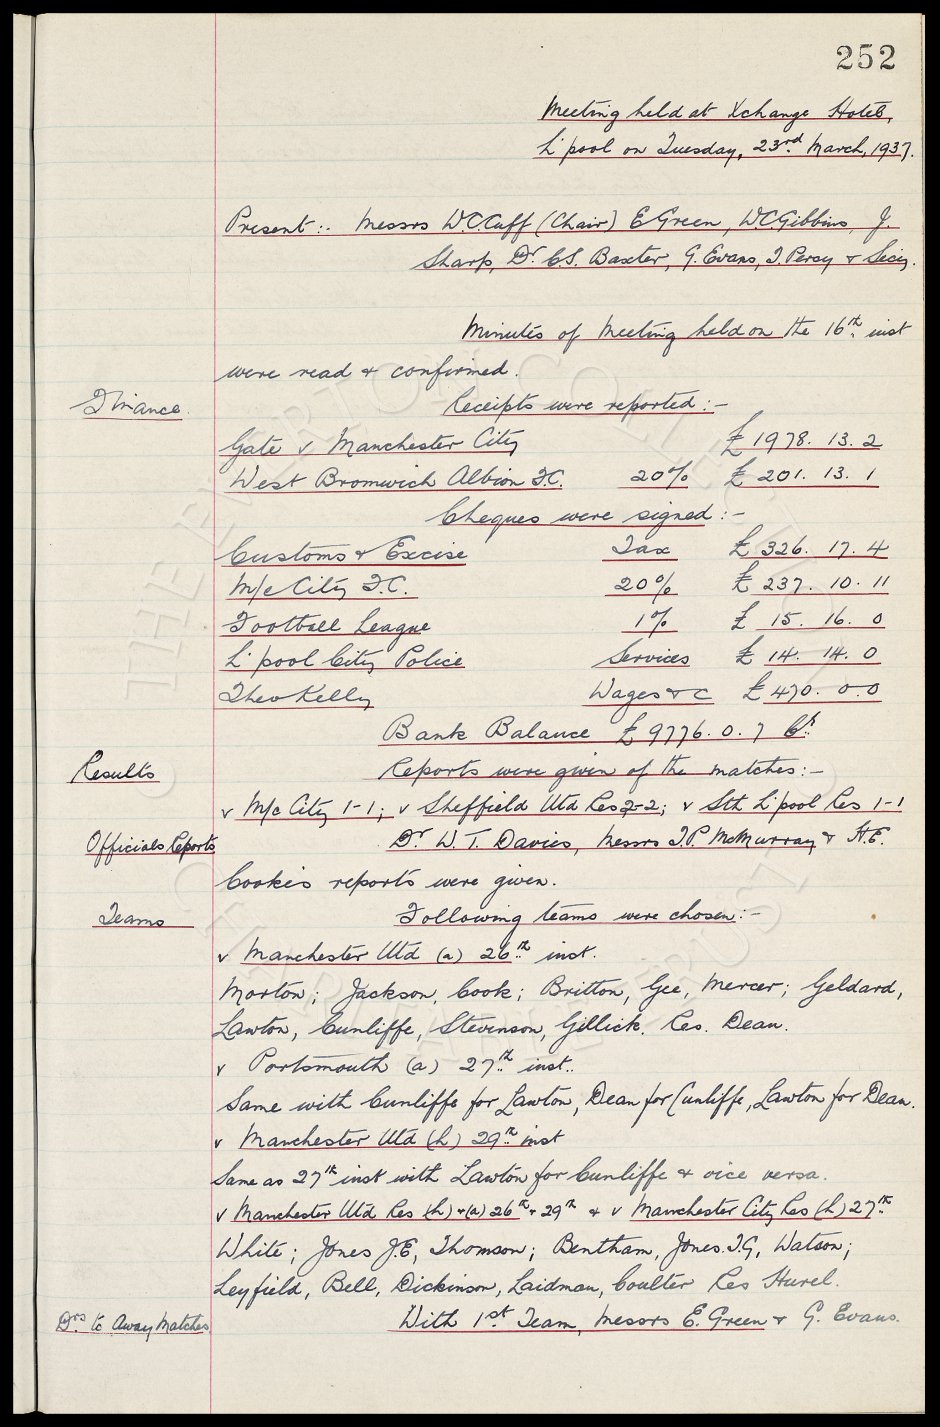 252
Meeting held at Xchange Hotel,
L'pool on Tuesday, 23rd March, 1937.
Present:- Messrs W.C.Cuff (Chair) E Green, W.C.Gibbins, J.
Sharp, Dr. C.S. Baxter, G. Evans, T. Percy & Secy.
Minutes of Meeting held on the 16th inst
were read & confirmed.
Finance.
Receipts were reported:-
Gate v Manchester City £ 1978. 13. 2
West Bromwich Albion F.C. 20% £ 201. 13. 1
Cheques were signed:-
Customs & Excise Tax £ 326. 17. 4
M/c City F.C. 20% £ 237. 10. 11
Football League 1% £ 15. 16. 0
L'pool City Police Services £ 14. 14. 0
Theo Kelly Wages &c £ 470. 0. 0
Bank Balance £ 9776. 0. 7 Cr.
Results
Reports were given of the matches:-
v M/c City 1-1; v Sheffield Utd Res 2-2; v Sth L'pool Res 1-1
Officials Reports
Dr W. T. Davies, Messrs J.P. McMurray & H.E.
Cooke's reports were given.
Teams
Following teams were chosen:-
v Manchester Utd (a) 26th inst.
Morton; Jackson, Cook; Britton, Gee, Mercer; Geldard,
Lawton, Cunliffe, Stevenson, Gillick. Res. Dean.
v Portsmouth (a) 27th inst.
Same with Cunliffe for Lawton, Dean for Cunliffe, Lawton for Dean.
v Manchester Utd (h) 29th inst
Same as 27th inst with Lawton for Cunliffe & vice versa.
v Manchester Utd Res (h) & (a) 26th & 29th & v Manchester City Res (h) 27th
White; Jones J.E, Thomson; Bentham, Jones.T.G, Watson;
Leyfield, Bell, Dickinson, Laidman, Coulter Res Hurel.
Drs to Away Matches
With 1st Team, Messrs E. Green & G. Evans.